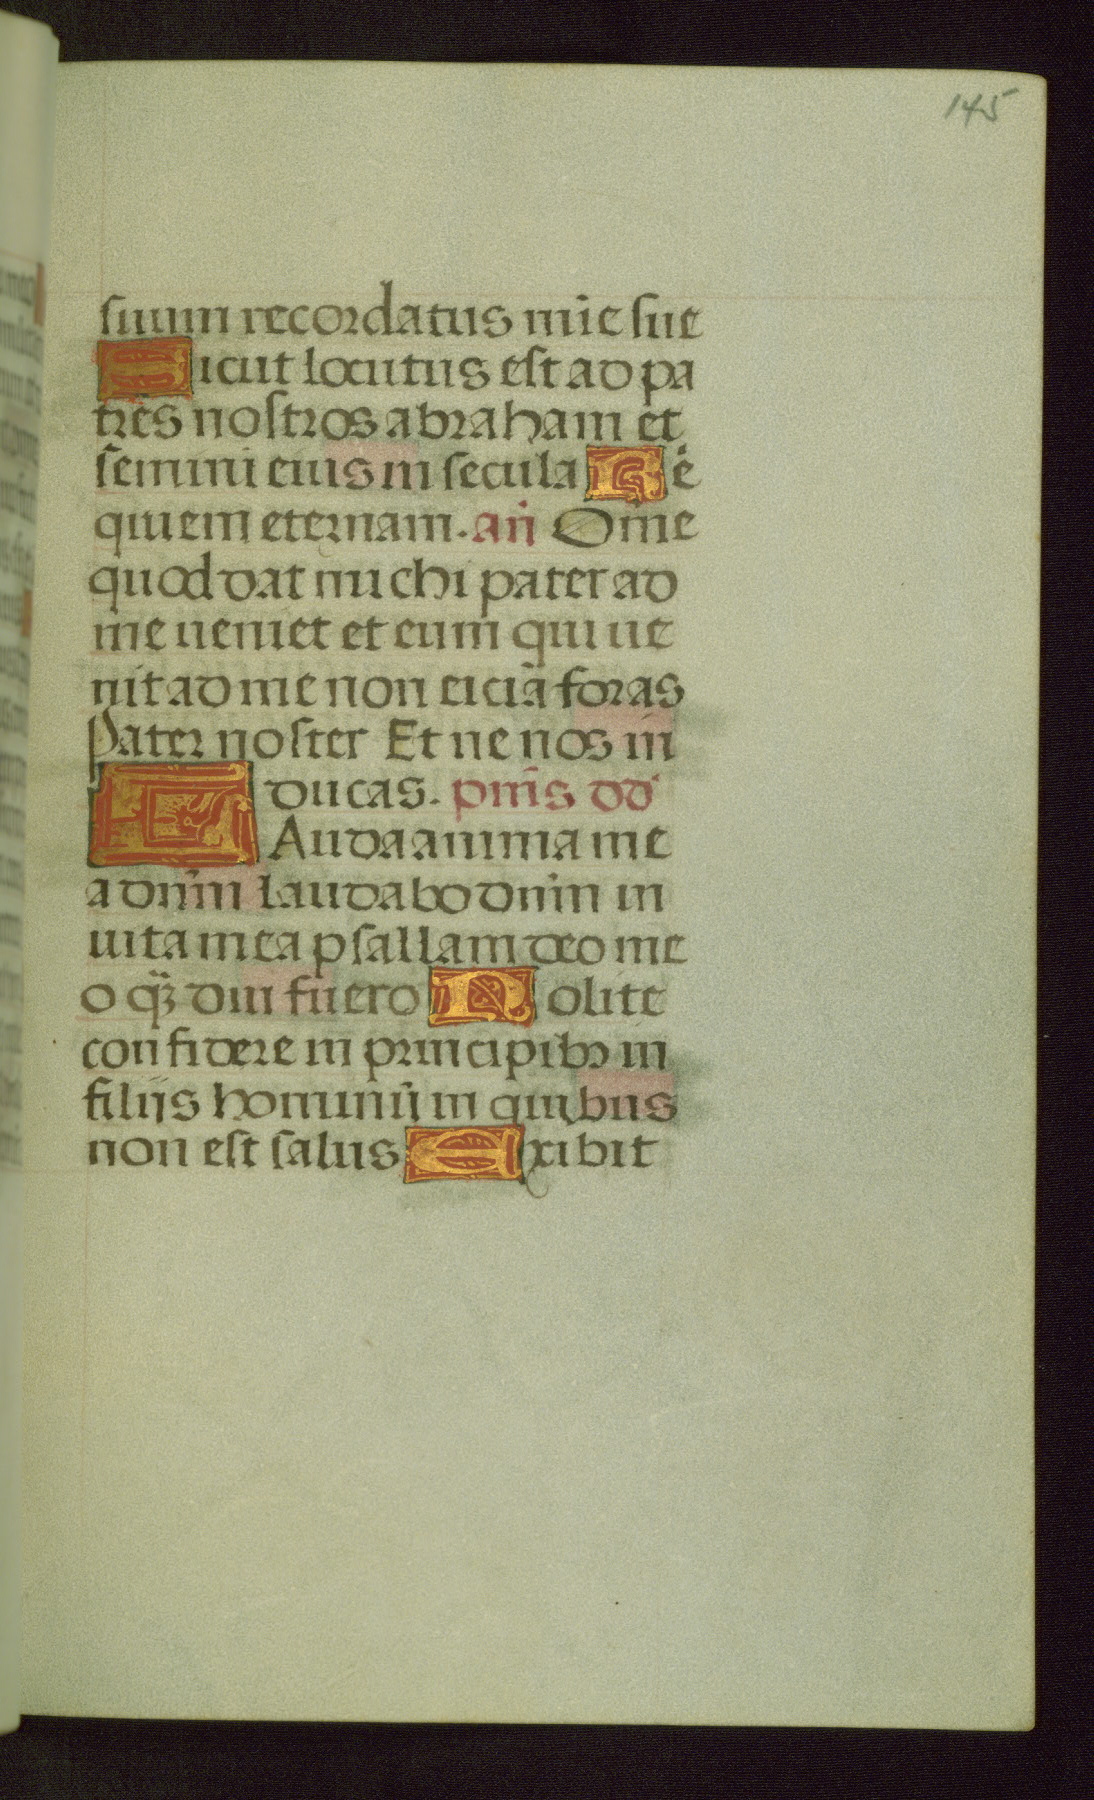 145
suum recordatus mīe sue
Sicut locutus est ad pa
tres nostros abraham et
semini eius in secula Re
quiem eternam. añ Ōme
quod dat michi pater ad
me ueniet et eum qui ue
nit ad me non eiciā foras
Pater noster Et ne nos in
ducas. pm̄s dd
LAuda anima me
a dn̄m laudabo dn̄m in
uita mea psallam deo me
o qꝫ diu fuero Nolite
confidere in principibꝰ in
filijs hominū in quibus
non est salus Exibit